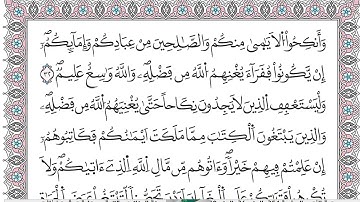 وَأَنكِحُوا۟ اُ۬لْأَيَٰمَىٰ مِنكُمْ وَالصَّٰلِحِينَ مِنْ عِبَادِكُمْ وَإِمَآئِكُمْۖ
إِنْ يَّكُونُوا۟ فُقَرَآءَ يُغْنِهِمُ اُ۬للَّهُ مِن فَضْلِهِۦۖ وَاللَّهُ وَٰسِعٌ عَلِيمٌۖ ٣٢
وَلْيَسْتَعْفِفِ اِ۬لذِينَ لَا يَجِدُونَ نِكَاحاً حَتَّىٰ يُغْنِيَهُمُ اُ۬للَّهُ مِن فَضْلِهِۦۖ
وَالذِينَ يَبْتَغُونَ اَ۬لْكِتَٰبَ مِمَّا مَلَكَتَ اَيْمَٰنُكُمْ فَكَاتِبُوهُمُۥٓ
إِنْ عَلِمْتُمْ فِيهِمْ خَيْراًۖ وَءَاتُوهُم مِّن مَّالِ اِ۬للَّهِ اِ۬لذِےٓ ءَات۪يٰكُمْۖ وَلَا